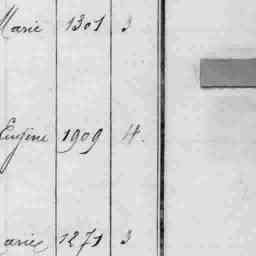 Marie 1301 3
Eugène 1909 4.
arie 1271 3